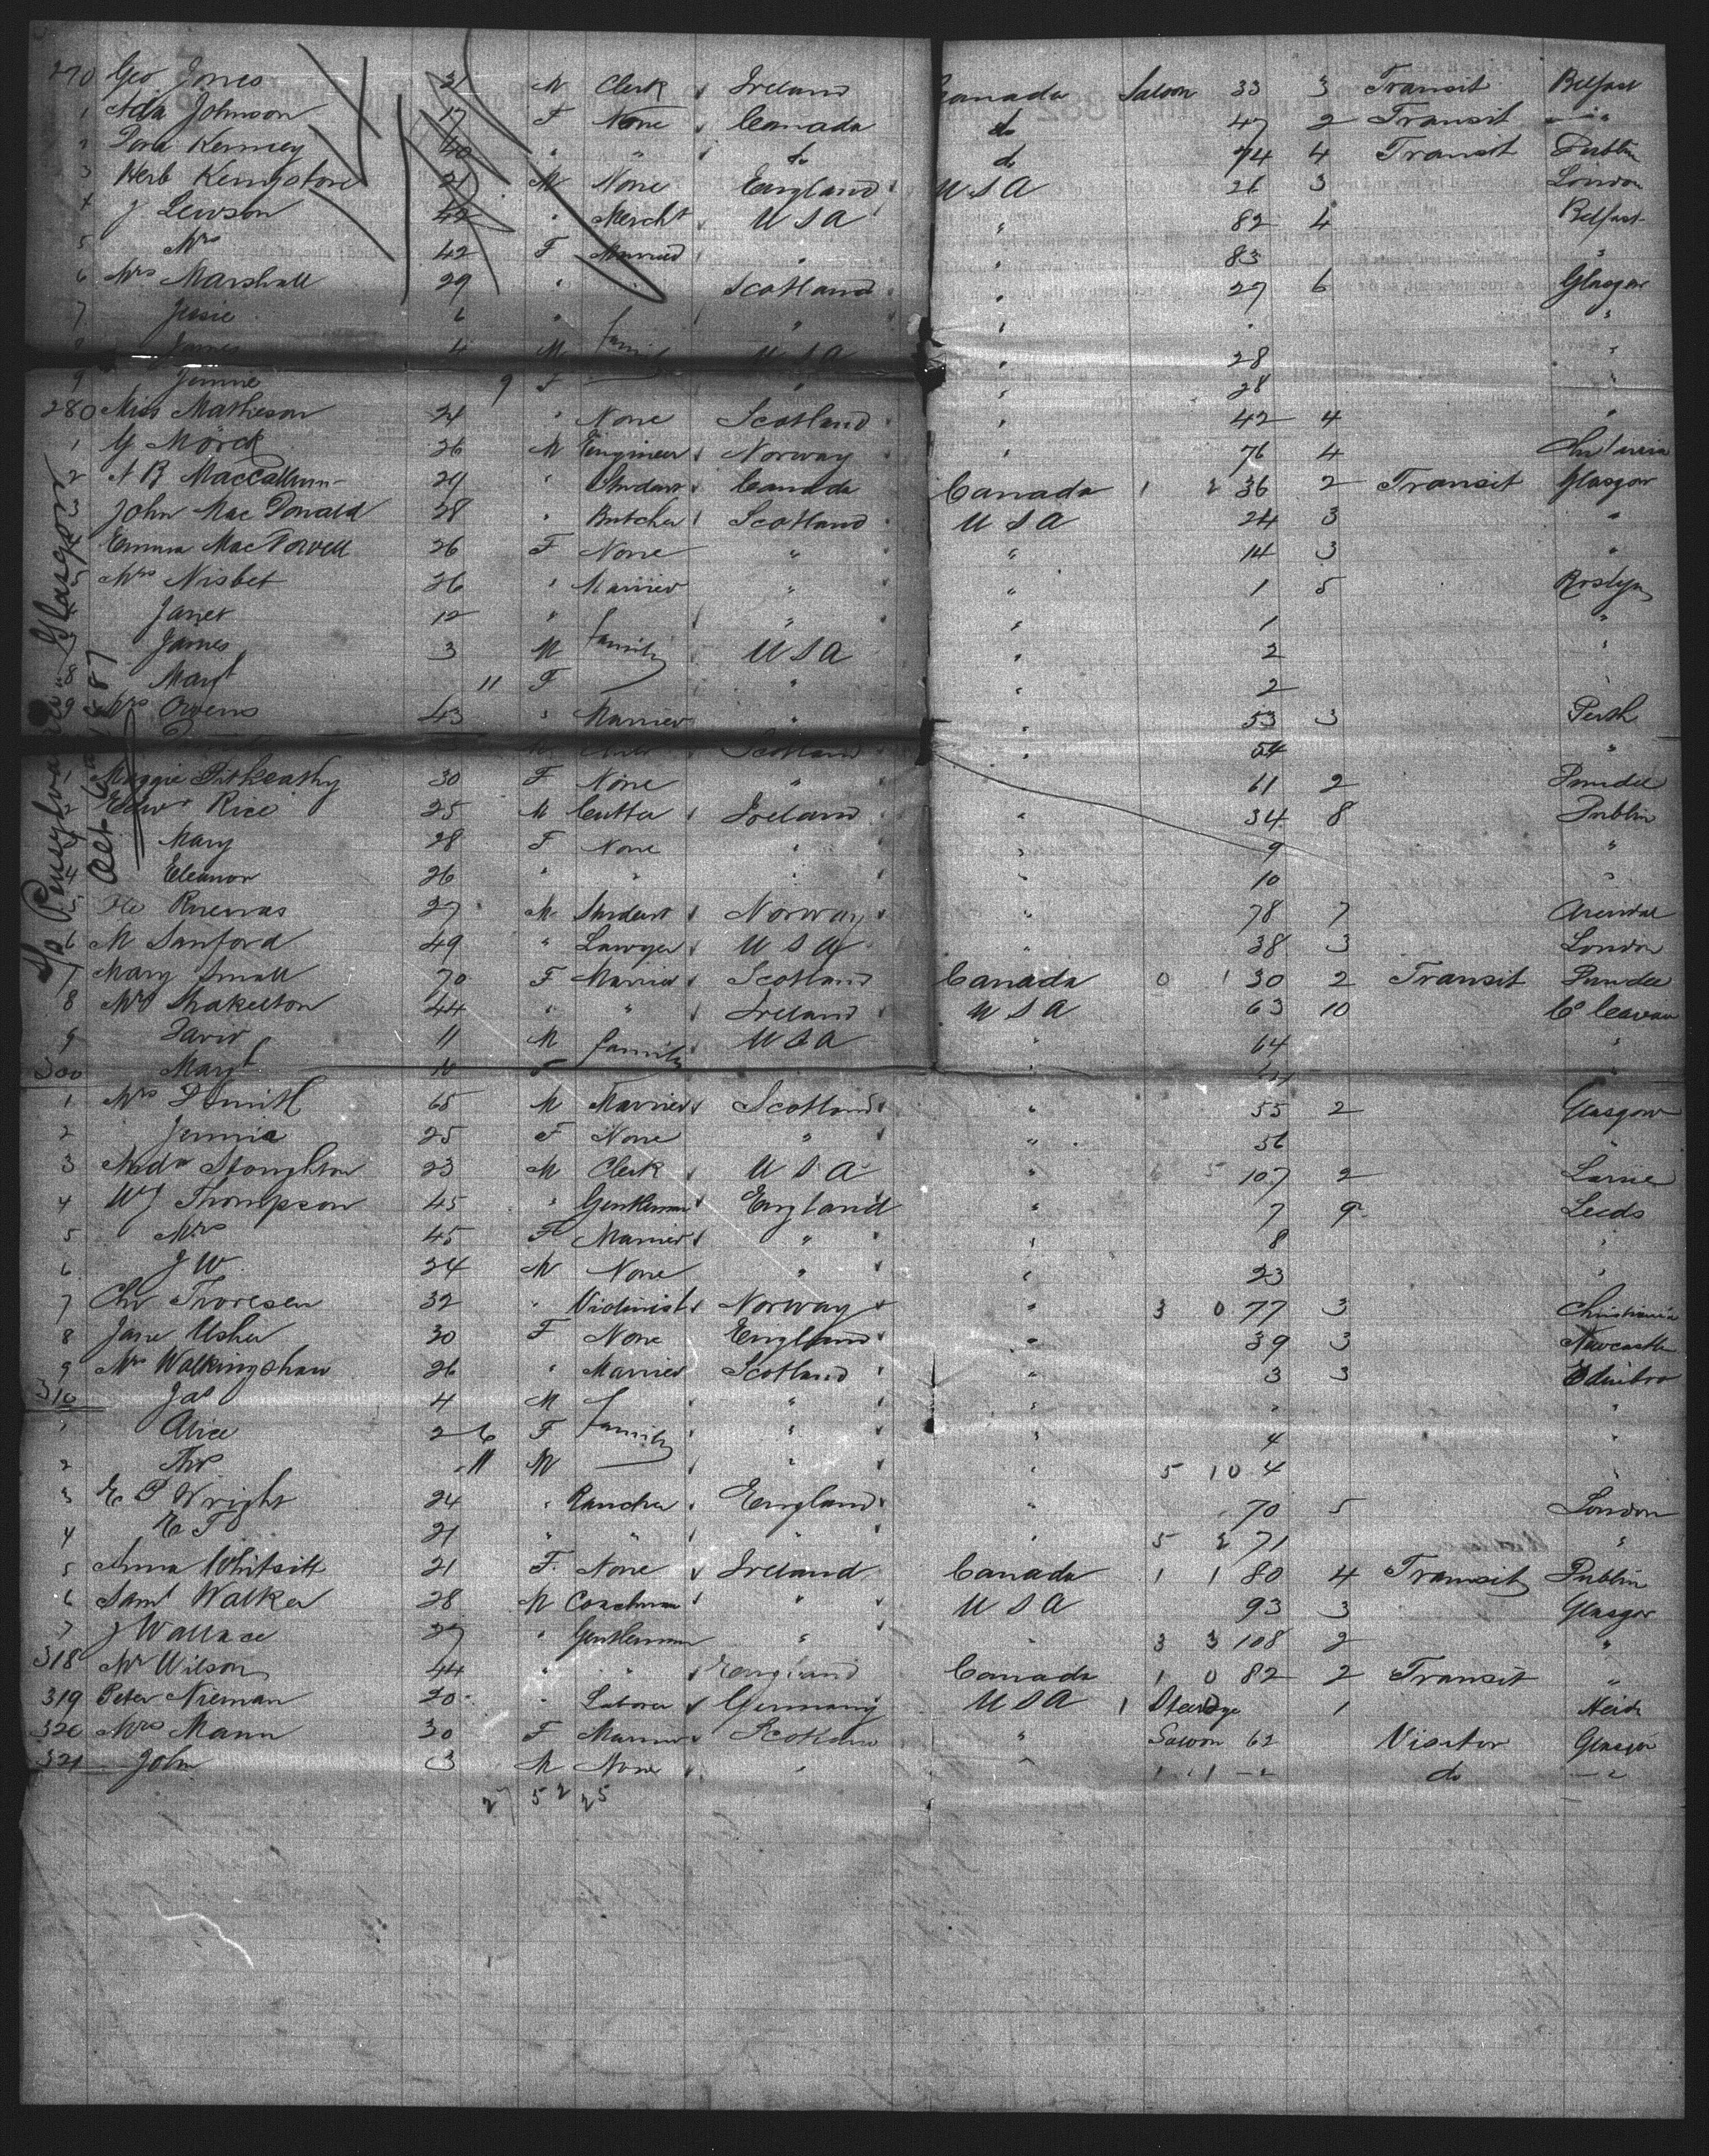 270 Geo Jones 31 M Clerk Ireland Canada Saloon 33 3 Transit Belfast
1 Ada Johnson 17 F None Canada do 47 2 Transit
2 Dora Kenney 40 " " do do 74 4 Transit Dublin
3 Herb Kingstone 21 M None England U S A 26 3 London
4 J Lewson 42 " Mercht U S A " 82 4 Belfast
5 Mrs 42 F Married " " 83 "
6 Mrs Marshall 29 " " Scotland " 27 6 Glasgow
7 Jessie 6 " " " " "
8 James 4 M family U S A " 28 "
9 Jennie 9 F " " 28 "
280 Miss Matheson 24 " None Scotland " 42 4 "
1 G Mörck 26 M Engineer Norway " 76 4
2 A B MacCallum 29 " Student Canada Canada 1 2 36 2 Transit Glasgow
3 John MacDonald 28 " Butcher Scotland U S A 24 3 "
Emma Mac 26 F None " " 14 3 "
5 Mrs Nisbet 36 " Married " " 1 5 Roslyn
Janet 12 " " " 1 "
7 James 3 M family U S A " 2 "
8 Margt 11 F " " 2
9 Mrs Owens 43 " Married " " 53 3 Perth
Scotland " 54 "
1 Maggie Pitkeathy 30 F None " " 61 2 Dundee
2 Edwd Rice 25 M Cutter Ireland " 34 8 Dublin
Mary 28 F None " " 9 "
4 Eleanor 26 " " " " 10 "
5 27 M Student Norway " 78 7 Arendal
6 M Sanford 49 " Lawyer U S A " 38 3 London
7 Mary Small 70 F Married Scotland Canada 0 1 30 2 Transit Dundee
8 Mrs Shakelton 44 " " Ireland U S A 63 10 Co Cavan
9 David 11 M family U S A " 64 "
300 Margt 10 F "
1 Mrs D Smith 65 M Married Scotland " 55 2 Glasgow
2 Jennie 25 F None " " 56 "
3 Andw Stoughton 23 M Clerk U S A " 6 5 107 2 Larne
4 W J Thompson 45 " Gentleman England " 7 9 Leeds
5 Mrs 45 F Married " " 8 "
6 J W 24 M None " " 23 "
7 Chr Thoresen 32 " Violinist Norway " 3 0 77 3 Christiania
8 Jane Usher 30 F None England " 39 3 Newcastle
9 Mrs Walkingshaw 26 " Married Scotland " 3 3 Edinbro
310 Jas 4 M family " " " "
1 Alice 2 6 F " " 4 "
2 Thos 11 M " " 5 10 4 "
3 E P Wright 24 " Rancher England " 70 5 London
4 E T 21 " " " " 5 2 71 "
5 Anna Whitsitt 21 F. None Ireland Canada 1 1 80 4 Transit Dublin
6 Saml Walker 28 M Coachman " U S A 93 3 Glasgow
7 J Wallace 27 " Gentleman " " 3 3 108 2 "
318 Mr Wilson 44 " " England Canada 1 0 82 2 Transit "
319 Peter Nieman 20 " Laborer Germany U S A 1 Steerage 1
320 Mrs Mann 30 F Married Scotland " Saloon 62 Visitor Glasgow
321 John 3 M None " " do
27 52 25
S/S Pennsylvania Glasgow
Oct 1887